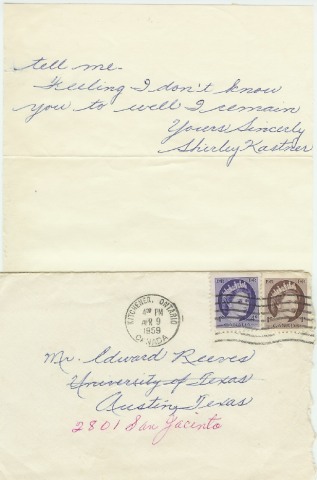 tell me.
Feeling I don't know
you to well I remain
Yours Sincerly
Shirley Kastner
KITCHENER, ONTARIO
4 PM
APR 9
1959
CANADA
Mr. Edward Reeves
University of Texas
Austin, Texas
2801 San Jacinto